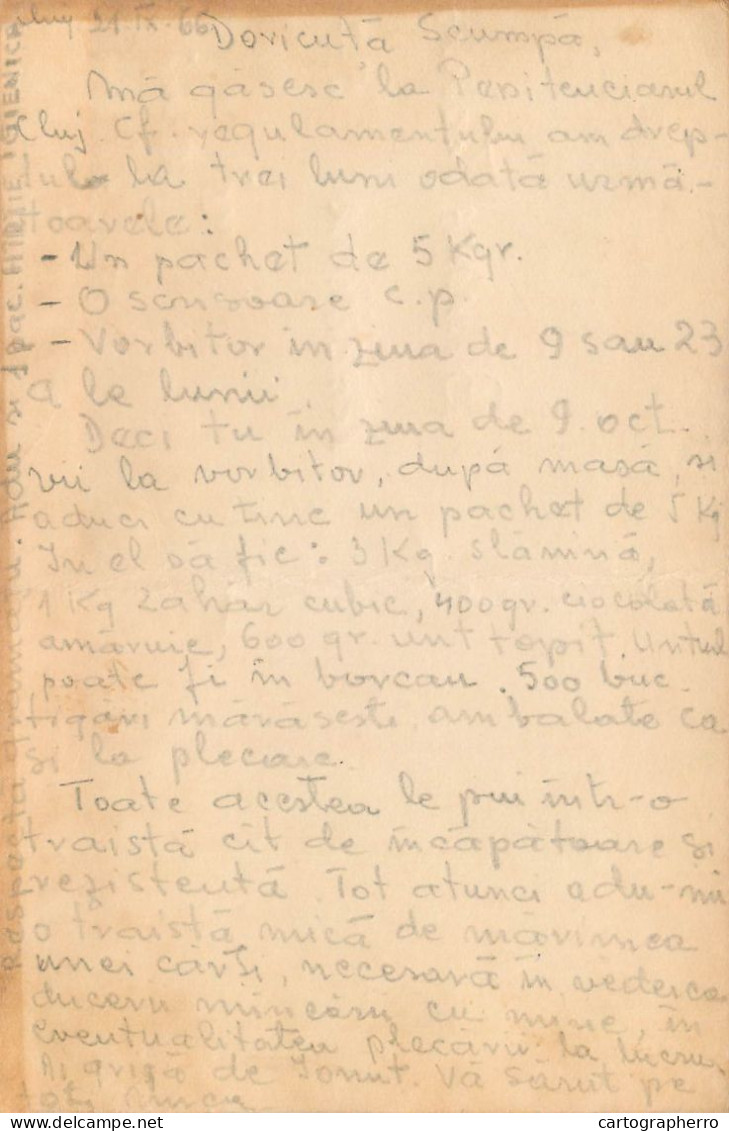 Cluj 21 IX 66
Doricuță Scumpă,
Mă găsesc la Penitenciarul
Cluj. Cf. regulamentului am drep-
tul la trei luni odată urmă-
toarele:
- Un pachet de 5 Kgr.
- O scrisoare c.p.
- Vorbitor în ziua de 9 sau 23
a le lunii.
Deci tu în ziua de 9. oct.
vii la vorbitor, după masă, și
aduci cu tine un pachet de 5 Kg
In el să fie: 3 Kg. slănină,
1 Kg zahăr cubic, 400 gr. ciocolată
amăruie, 600 gr. unt topit. Untul
poate fi în borcan. 500 buc.
țigări mărășești ambalate ca
și la plecare.
Toate acestea le pui într-o
traistă cît de încăpătoare și
rezistentă. Tot atunci adu-mi
o traistă mică de mărimea
unei cărți, necesară în vederea
ducerii mîncării cu mine, în
eventualitatea plecării la lucru.
Ai grijă de Ionuț. Vă sărut pe
toți
Respectă greutatea. Adu și 1 pac. HIRTIE IGIENICĂ
cartographerro